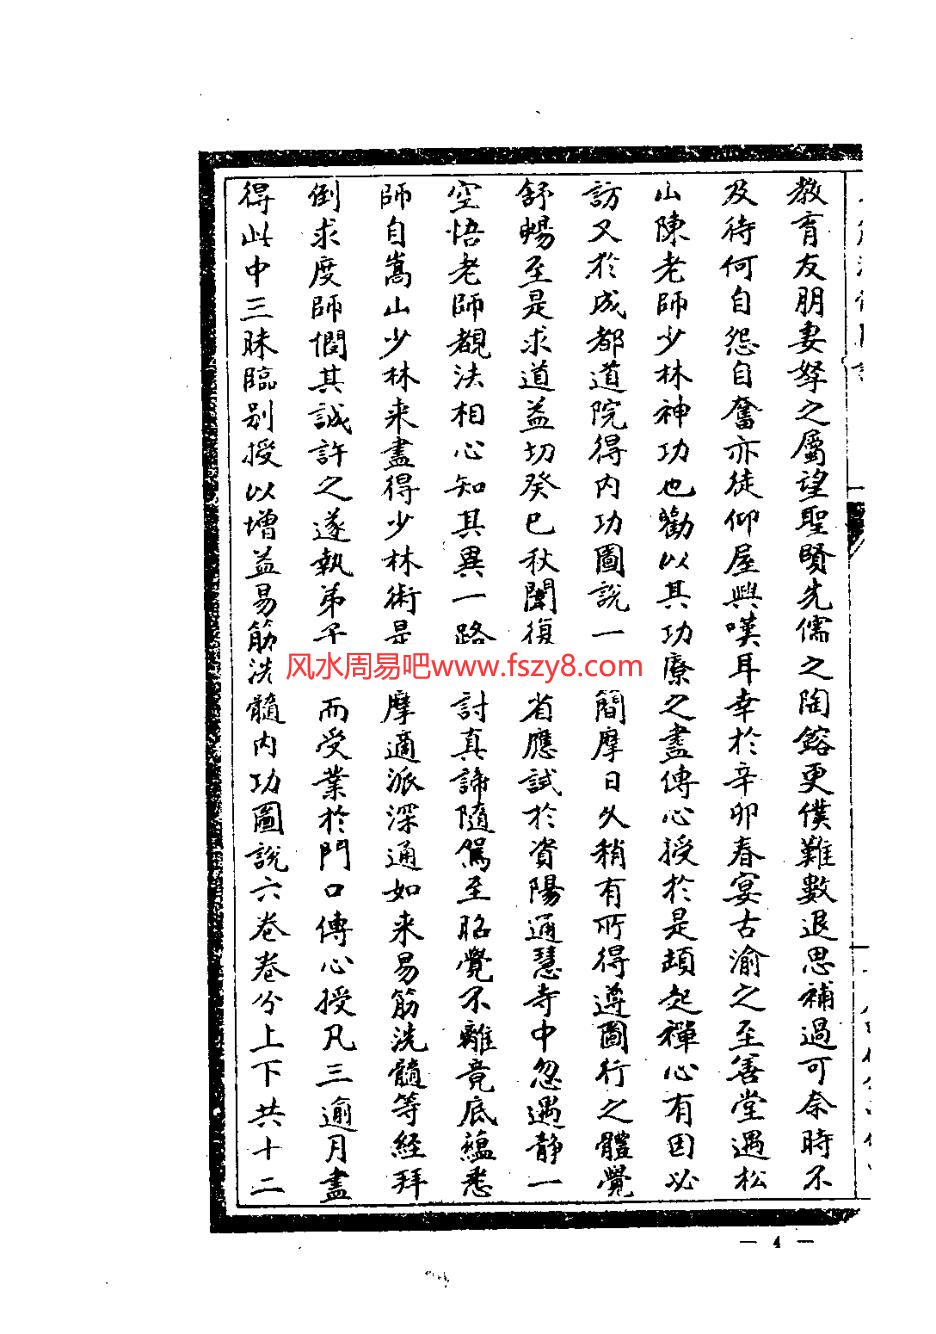 教育友朋妻孥之屬望聖賢先儒之陶鎔更僕難數退思補過可奈時不
及待何自怨自奮亦徒仰屋興嘆耳幸於辛卯春宴古渝之至善堂遇松
山陳老師少林神功也勸以其功療之盡傳心授於是頓起禪心有因必
訪又於成都道院得内功圖說一簡摩日久稍有所得遵圖行之體覺
舒暢至是求道益切癸巳秋闈復省應試於資陽通慧寺中忽遇静一
空悟老師覩法相心知其異一路討真諦隨駕至昭覺不離竟底蘊悉
師自嵩山少林来盡得少林術是摩適派深通如来易筋洗髓等經拜
倒求度師憫其誠許之遂執弟子而受業於門口傳心授凡三逾月盡
得此中三昧臨别授以增益易筋洗髓内功圖說六卷卷分上下共十二
风水周易吧www.fszy8.com
— 4 —